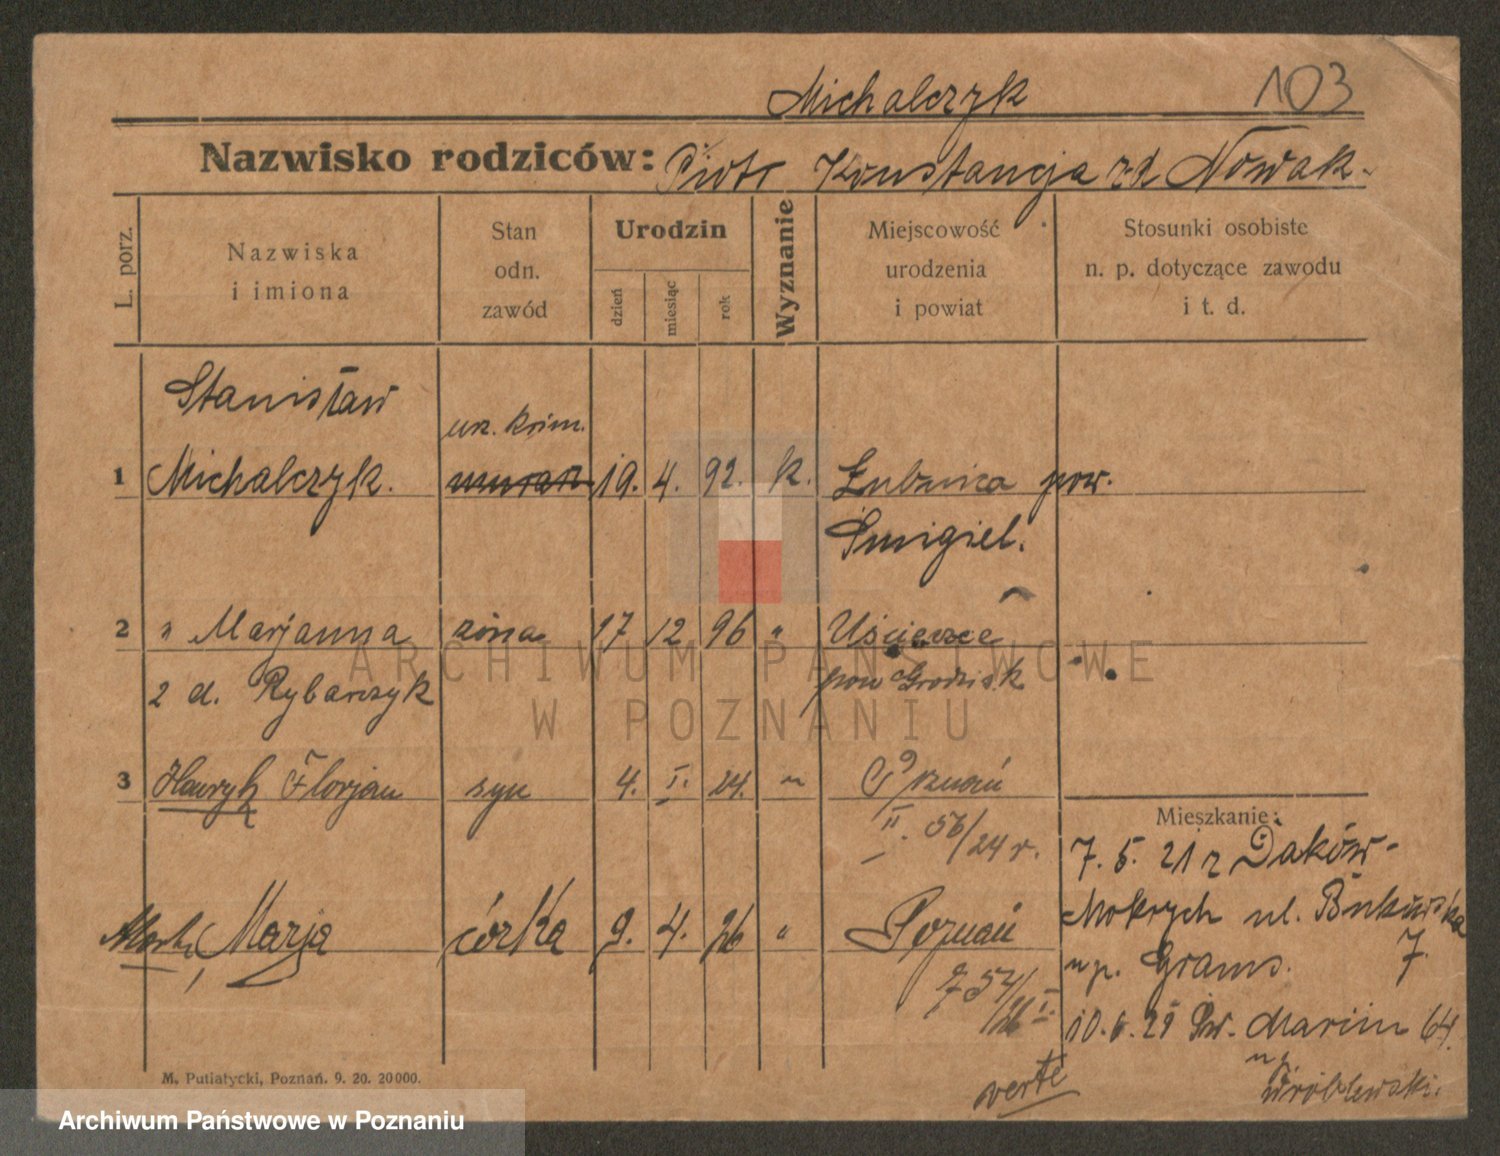 Michalczyk 103
Nazwisko rodziców: Piotr Konstancja zd Nowak.
L. porz.
Nazwiska
i imiona
Stan
odn.
zawód
Urodzin
dzień
miesiąc
rok
Wyznanie
Miejscowość
urodzenia
i powiat
Stosunki osobiste
n. p. dotyczące zawodu
i t. d.
Stanisław
urz. krim.
1 Michalczyk. murarz 19. 4. 92. k. Łubnica pow.
Śmigiel.
2 " Marjanna żona 17 12 96 " Uścięcice
z d. Rybarczyk pow Grodzisk
3 Henryk Florjan syn 4. I. 24. " Poznań
II. 56/24 r.
Mieszkanie:
7. 5. 21 z Daków-
Mokrych ul. Bukowska
Marja córka 9. 4. 26 " Poznań
7
u p. Grams.
754/26 I.
10. 6. 21 Św. Marcin 64.
u p
Wróblewski.
verte
M. Putiatycki, Poznań. 9. 20. 20000.
ARCHIWUM PAŃSTWOWE
W POZNANIU
Archiwum Państwowe w Poznaniu